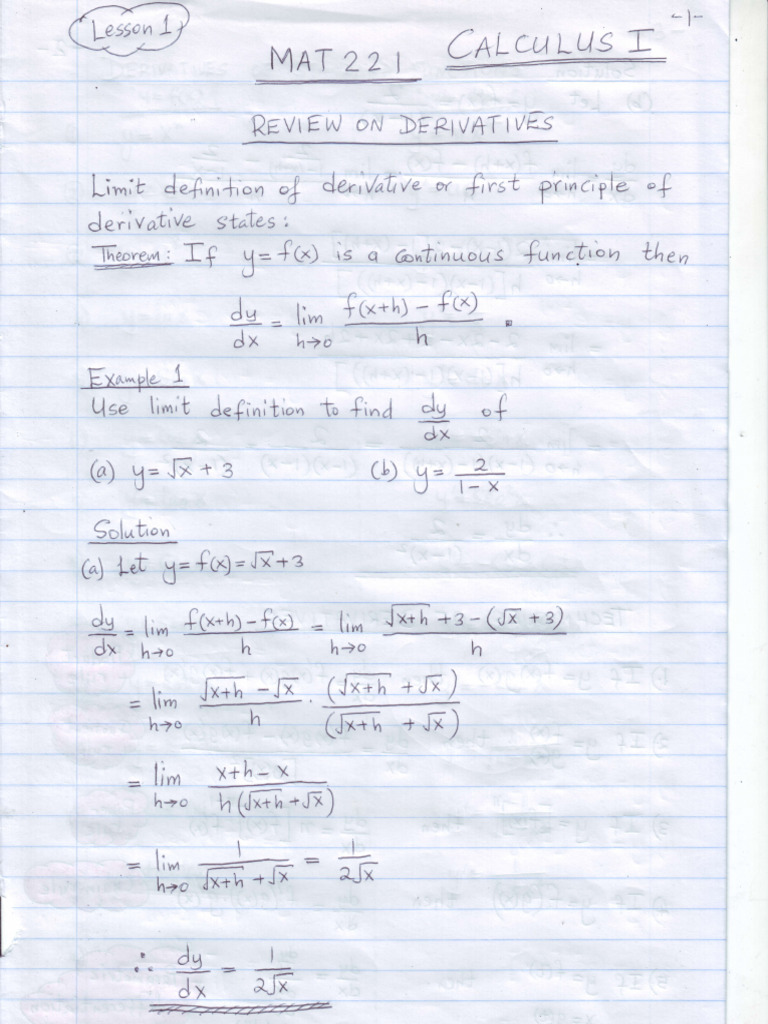 Lesson 1
-1-
MAT 221 CALCULUS I
REVIEW ON DERIVATIVES
Limit definition of derivative or first principle of
derivative states:
Theorem: If y = f(x) is a continuous function then
dy/dx = lim h→0 (f(x+h) - f(x))/h .
Example 1
Use limit definition to find dy/dx of
(a) y = √x + 3 (b) y = 2/(1-x)
Solution
(a) Let y = f(x) = √x + 3
dy/dx = lim h→0 (f(x+h) - f(x))/h = lim h→0 (√(x+h) + 3 - (√x + 3))/h
= lim h→0 (√(x+h) - √x)/h · (√(x+h) + √x)/(√(x+h) + √x)
= lim h→0 (x+h-x)/(h(√(x+h) + √x))
= lim h→0 1/(√(x+h) + √x) = 1/(2√x)
∴ dy/dx = 1/(2√x)